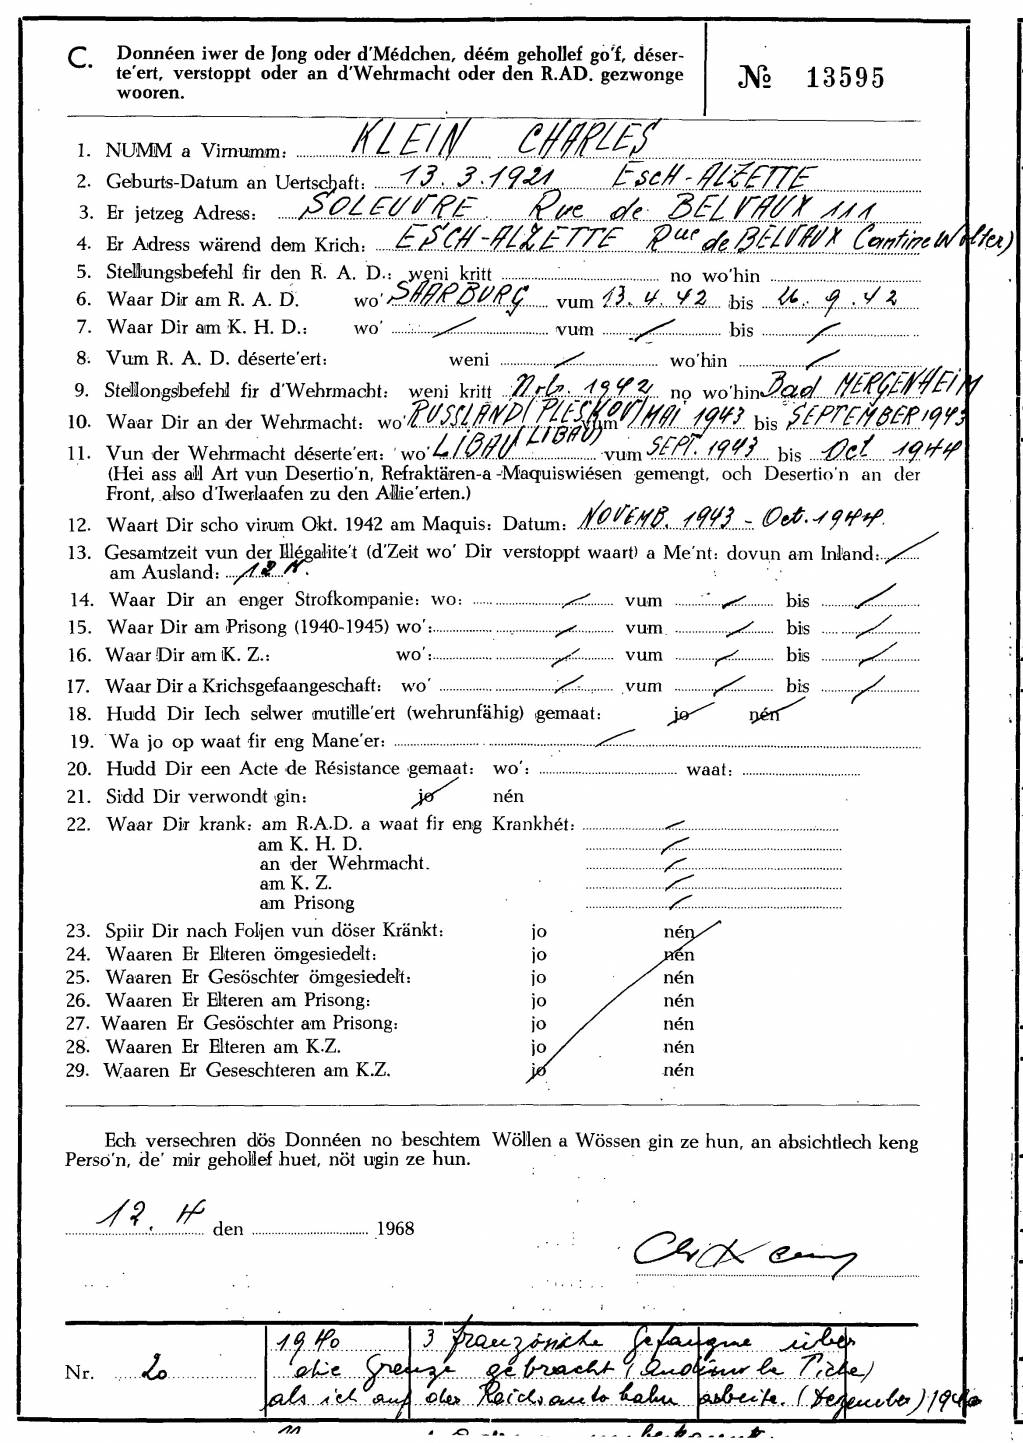 C. Donnéen iwer de Jong oder d'Médchen, déém gehollef go'f, déser-
te'ert, verstoppt oder an d'Wehrmacht oder den R.AD. gezwonge
wooren.
№ 13595
1. NUMM a Virnumm: KLEIN CHARLES
2. Geburts-Datum an Uertschaft: 13.3.1921 EscH-ALZETTE
3. Er jetzeg Adress: SOLEUVRE Rue de BELVAUX 111
4. Er Adress wärend dem Krich: ESCH-ALZETTE Rue de BELVAUX (Cantine Wolter)
5. Stellungsbefehl fir den R. A. D.: weni kritt no wo'hin
6. Waar Dir am R. A. D. wo' SAARBURG vum 13.4.42 bis 26.9.42
7. Waar Dir am K. H. D.: wo' / vum / bis /
8. Vum R. A. D. déserte'ert: weni / wo'hin /
9. Stellongsbefehl fir d'Wehrmacht: weni kritt 1942 no wo'hin Bad MERGENHEIM
10. Waar Dir an der Wehrmacht: wo' RUSSLAND (PLESKOV) vum MAI 1943 bis SEPTEMBER 1943
11. Vun der Wehrmacht déserte'ert: wo' LIBAU (LIBAU) vum SEPT. 1943 bis Oct 1944
(Hei ass all Art vun Desertio'n, Refraktären-a-Maquiswiésen gemengt, och Desertio'n an der
Front, also d'Iwerlaafen zu den Allie'erten.)
12. Waart Dir scho virum Okt. 1942 am Maquis: Datum: NOVEMB. 1943 - Oct. 1944.
13. Gesamtzeit vun der Illégalite't (d'Zeit wo' Dir verstoppt waart) a Me'nt: dovun am Inland: /
am Ausland: 12 M.
14. Waar Dir an enger Strofkompanie: wo: / vum / bis /
15. Waar Dir am Prisong (1940-1945) wo': / vum / bis /
16. Waar Dir am K. Z.: wo': / vum / bis /
17. Waar Dir a Krichsgefaangeschaft: wo' / vum / bis /
18. Hudd Dir Iech selwer mutille'ert (wehrunfähig) gemaat: jo nén
19. Wa jo op waat fir eng Mane'er: /
20. Hudd Dir een Acte de Résistance gemaat: wo': waat:
21. Sidd Dir verwondt gin: jo nén
22. Waar Dir krank: am R.A.D. a waat fir eng Krankhét: /
am K. H. D. /
an der Wehrmacht. /
am K. Z. /
am Prisong /
23. Spiir Dir nach Foljen vun döser Kränkt: jo nén
24. Waaren Er Elteren ömgesiedelt: jo nén
25. Waaren Er Gesöschter ömgesiedelt: jo nén
26. Waaren Er Elteren am Prisong: jo nén
27. Waaren Er Gesöschter am Prisong: jo nén
28. Waaren Er Elteren am K.Z. jo nén
29. Waaren Er Geseschteren am K.Z. jo nén
Ech versechren dös Donnéen no beschtem Wöllen a Wössen gin ze hun, an absichtlech keng
Perso'n, de' mir gehollef huet, nöt ugin ze hun.
12. 4 den 1968
Nr. 20
1940 3 französiche Gefangne über
die Grenze gebracht (Audun le Tiche)
als ich auf der Reichsautobahn arbeite. (Dezember) 1940